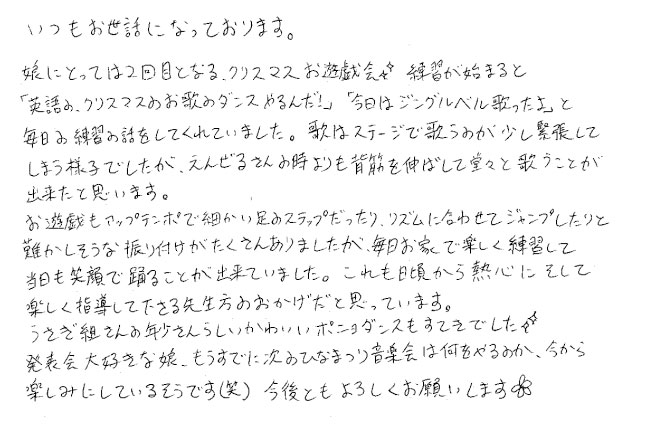 いつもお世話になっております。
娘にとっては2回目となる、クリスマスお遊戯会✨ 練習が始まると
「英語の、クリスマスのお歌のダンスやるんだ!」「今日はジングルベル歌ったよ」と
毎日お練習の話をしてくれていました。歌はステージで歌うのが少し緊張して
しまう様子でしたが、えんぜるさんの時よりも背筋を伸ばして堂々と歌うことが
出来たと思います。
お遊戯もアップテンポで細かい足のステップだったり、リズムに合わせてジャンプしたりと
難かしそうな振り付けがたくさんありましたが、毎日お家で楽しく練習して
当日も笑顔で踊ることが出来ていました。これも日頃から熱心にそして
楽しく指導して下さる先生方のおかげだと思っています。
うさぎ組さんの年少さんらしいかわいいポニョダンスもすてきでした✨
発表会大好きな娘、もうすでに次のひなまつり音楽会は何をやるのか、今から
楽しみにしているそうです(笑) 今後ともよろしくお願いします